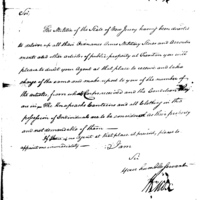 Sir.
The Militia of the State of New Jersey having been desired
to deliver up all their Ordnance Arms Military Stores and Accoutre
ments and other articles of public property at Trenton you will
please to direct your Agent at that place to receive and take
charge of the same and make report to you of the number of
the articles, from what and the Condition they
are in — the Knapsacks Canteens and all Clothing in the
possession of Individuals are to be considered as their property
and not demandable of them —
If there is no agent at that place at present, please to
appoint one immediately — I am
Sir
Your humble Servant